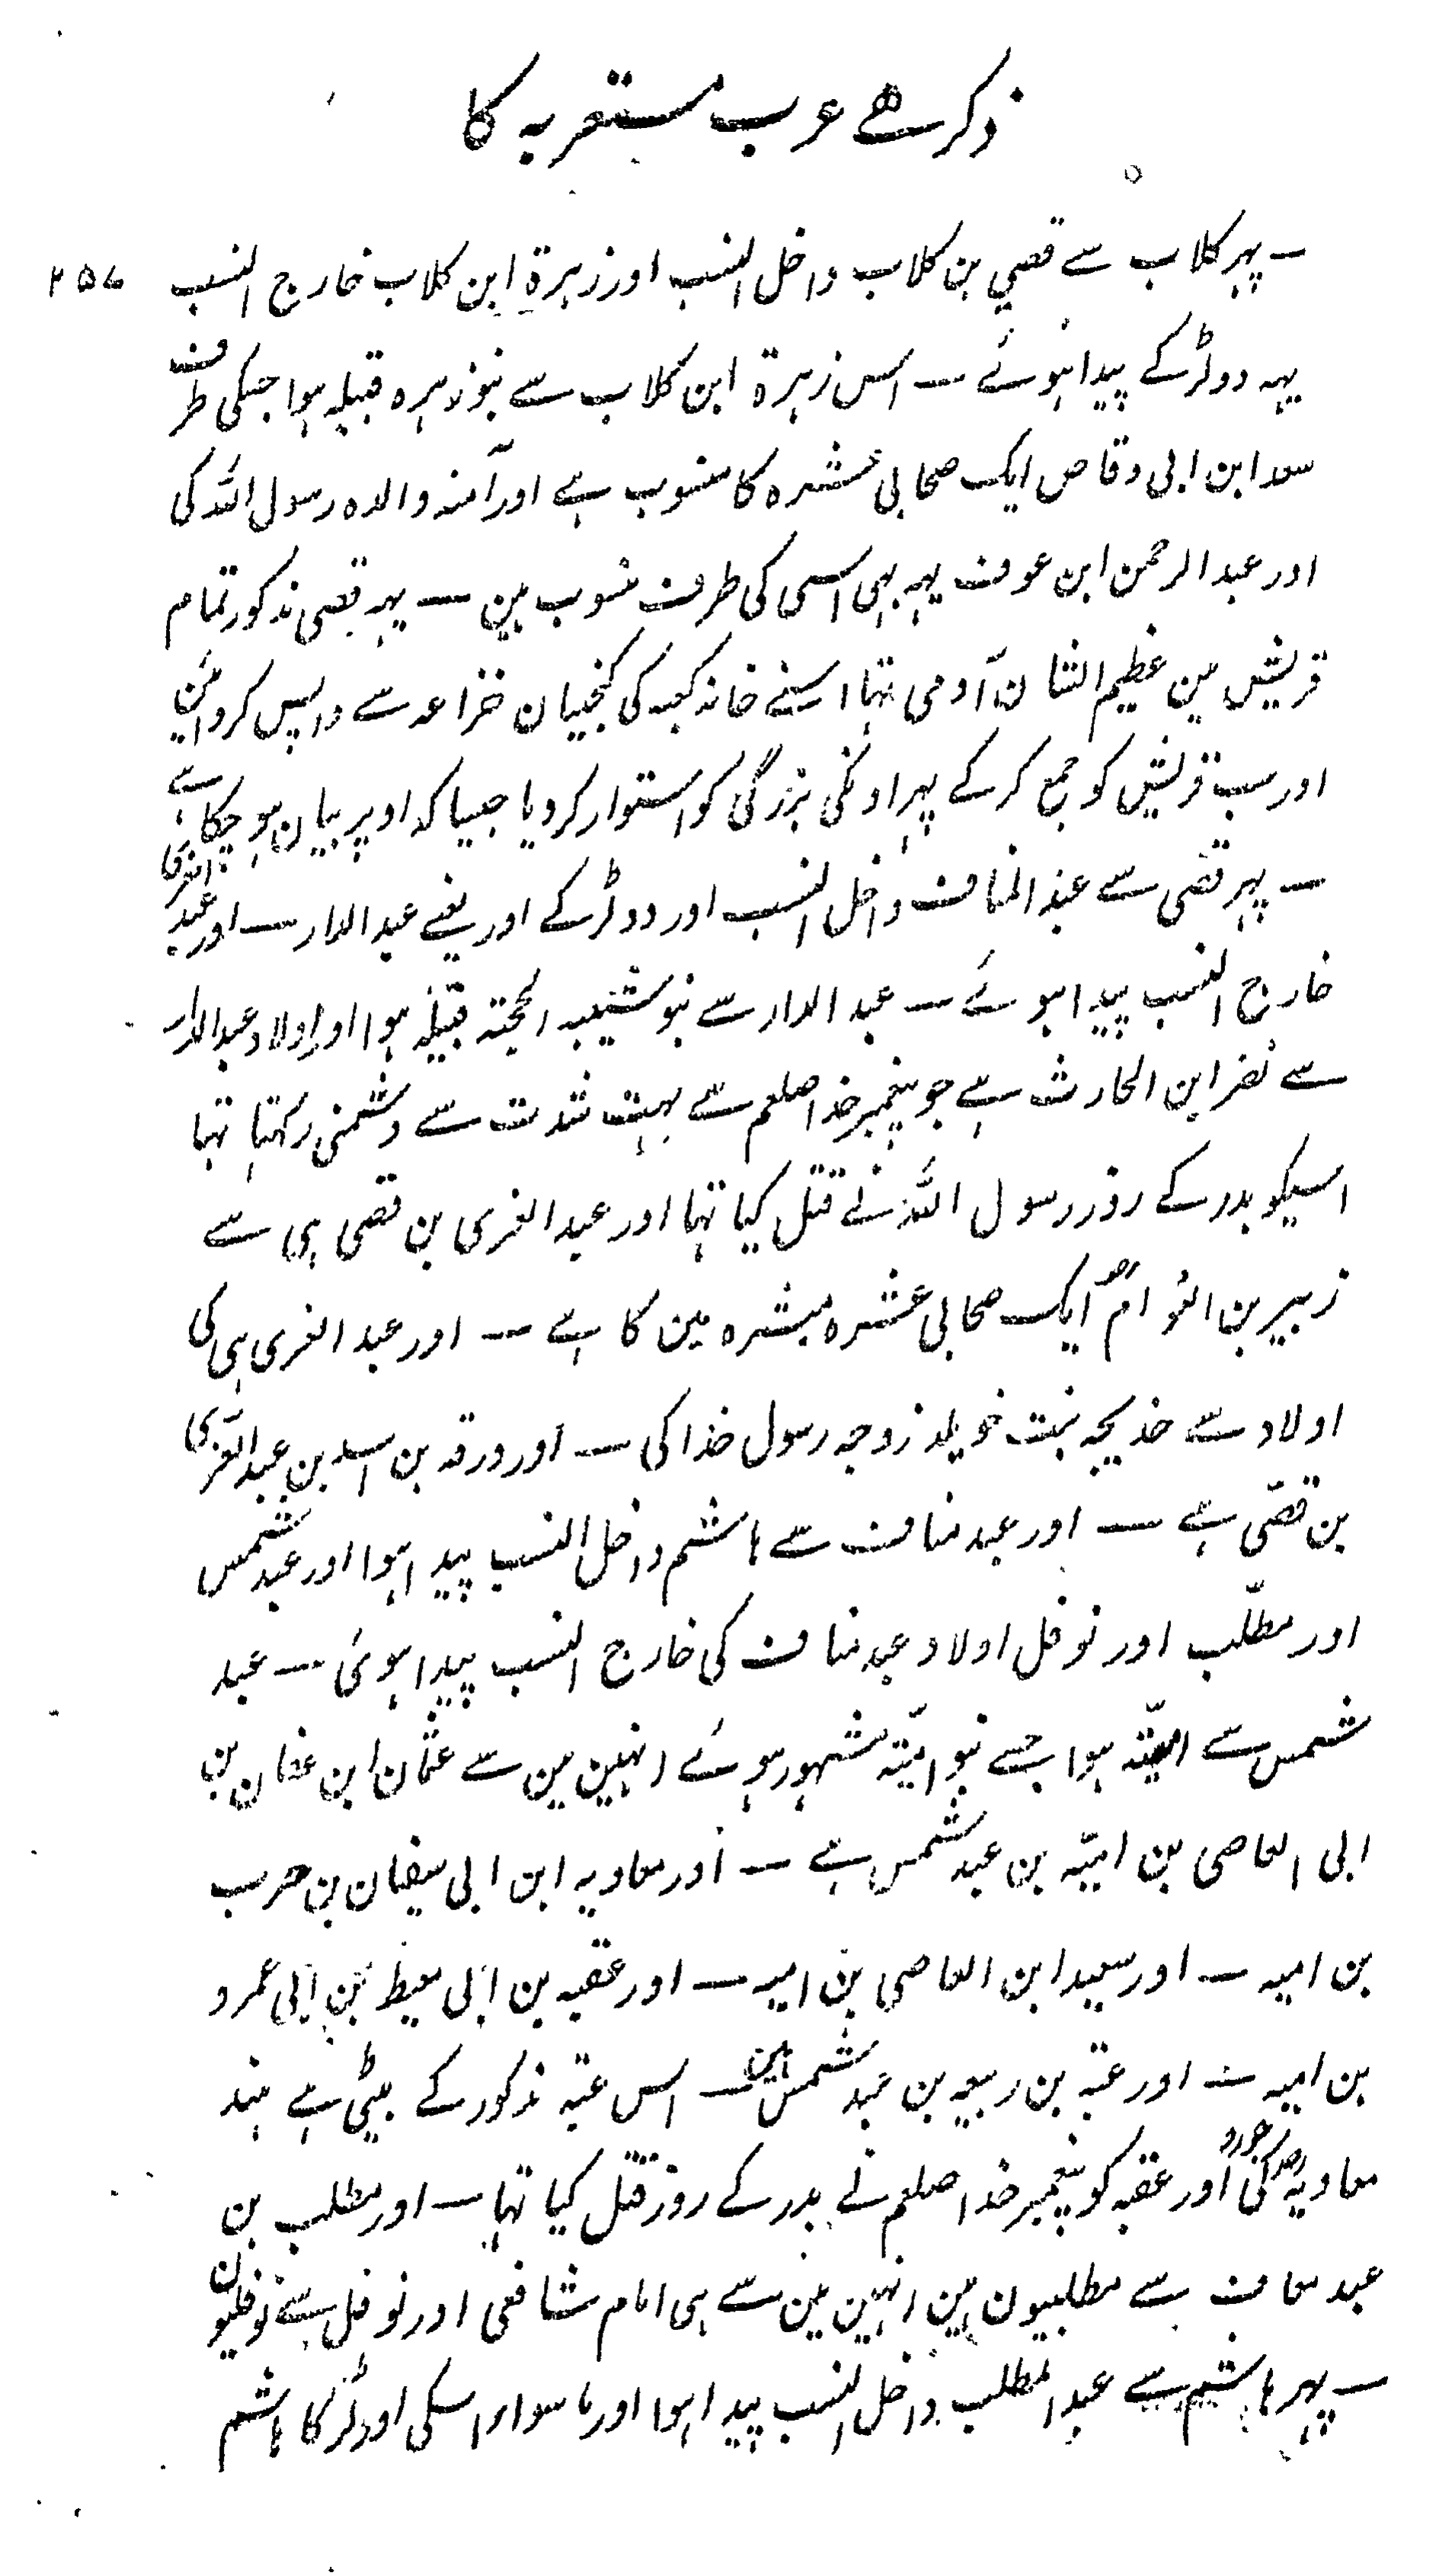 ذکر ہے عرب مستعربہ کا
۲۵۷
ـــ پہر کلاب سے قصي بن کلاب داخل النسب اور زہرۃ ابن کلاب خارج النسب
یہہ دو لڑکے پیدا ہوئے ـــ اس زہرۃ ابن کلاب سے بنو زہرہ قبیلہ ہوا جسکی طرف
سعد ابن ابی وقاص ایک صحابی عشرہ کا منسوب ہے اور آمنہ والدہ رسول اللہ کی
اور عبد الرحمن ابن عوف یہہ بہی اسی کی طرف منسوب ہین ـــ یہہ قصی مذکور تمام
قریش مین عظیم الشان آدمی تہا اسنے خانہ کعبہ کی کنجیان خزاعہ سے واپس کروائین
اور سب قریش کو جمع کر کے پہر اونکی بزرگی کو استوار کردیا جیسا کہ اوپر بیان ہو چکا ہے
ـــ پہر قصی سے عبد المناف داخل النسب اور دو لڑکے اور یعنے عبد الدار ـــ اور عبد العزی
خارج النسب پیدا ہوئے ـــ عبد الدار سے بنو شیبہ الحجتہ قبیلہ ہوا اور اولاد عبد الدار
سے نضر ابن الحارث ہے جو پیغمبر خدا صلعم سے بہت شدت سے دشمنی رکہتا تہا
اسیکو بدر کے روز رسول اللہ نے قتل کیا تہا اور عبد العزی بن قصی ہی سے
زبیر بن العوام رضہ ایک صحابی عشرہ مبشرہ مین کا ہے ـــ اور عبد العزی ہی کی
اولاد سے خدیجہ بنت خویلد زوجہ رسول خدا کی ـــ اور ورقہ بن اسد بن عبد العزّی
بن قصّی ہے ـــ اور عبد مناف سے ہاشم داخل النسب پیدا ہوا اور عبد شمس
اور مطلّب اور نوفل اولاد عبد مناف کی خارج النسب پیدا ہوئی ـــ عبد
شمس سے امیّتہ ہوا جسے بنو امیّتہ مشہور ہوئے انہین مین سے عثمان ابن عفان بن
ابی العاصی بن امیّہ بن عبد شمس ہے ـــ اور معاویہ ابن ابی سیفان بن حرب
بن امیہ ـــ اور سعید ابن العاصی بن امیہ ـــ اور عقبہ بن ابی معیط بن ابی عمرو
بن امیہ ـــ اور عتبہ بن ربیعہ بن عبد شمس ہین ـــ اس عتبہ مذکور کے بیٹی ہے ہند
معاویہ رضہ کی اور عقبہ کو پیغمبر خدا صلعم نے بدر کے روز قتل کیا تہا ـــ اور مطلب بن
عبد مناف سے مطلبیون ہین انہین مین سے ہی امام شافعی اور نوفل سے نوفلیون
ـــ پہر ہاشم سے عبد المطلب داخل النسب پیدا ہوا اور ما سوائے اسکی اور لڑکا ہاشم